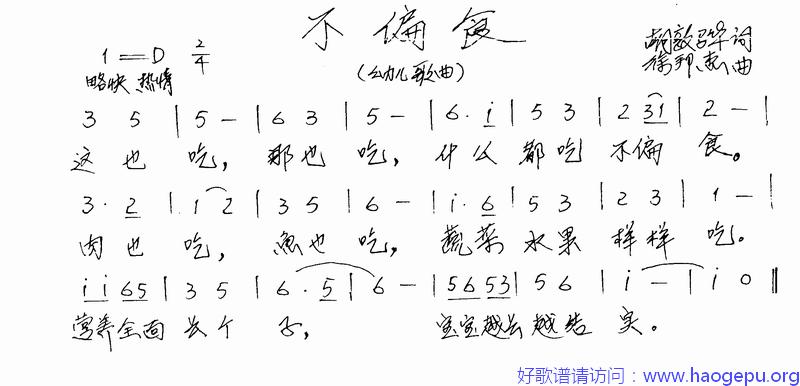 不偏食
1=D 2/4
(幼儿歌曲)
胡敦华词
略快 热情
徐邦杰曲
3 5 | 5 - | 6 3 | 5 - | 6. i | 5 3 | 2 31 | 2 - |
这也吃，那也吃，什么都吃不偏食。
3. 2 | 1 2 | 3 5 | 6 - | i. 6 | 5 3 | 2 3 | 1 - |
肉也吃，鱼也吃，蔬菜水果样样吃。
i i 65 | 3 5 | 6. 5 | 6 - | 56 53 | 56 | i - | i 0 ‖
营养全面长个子，宝宝越长越结实。
好歌谱请访问：www.haogepu.org